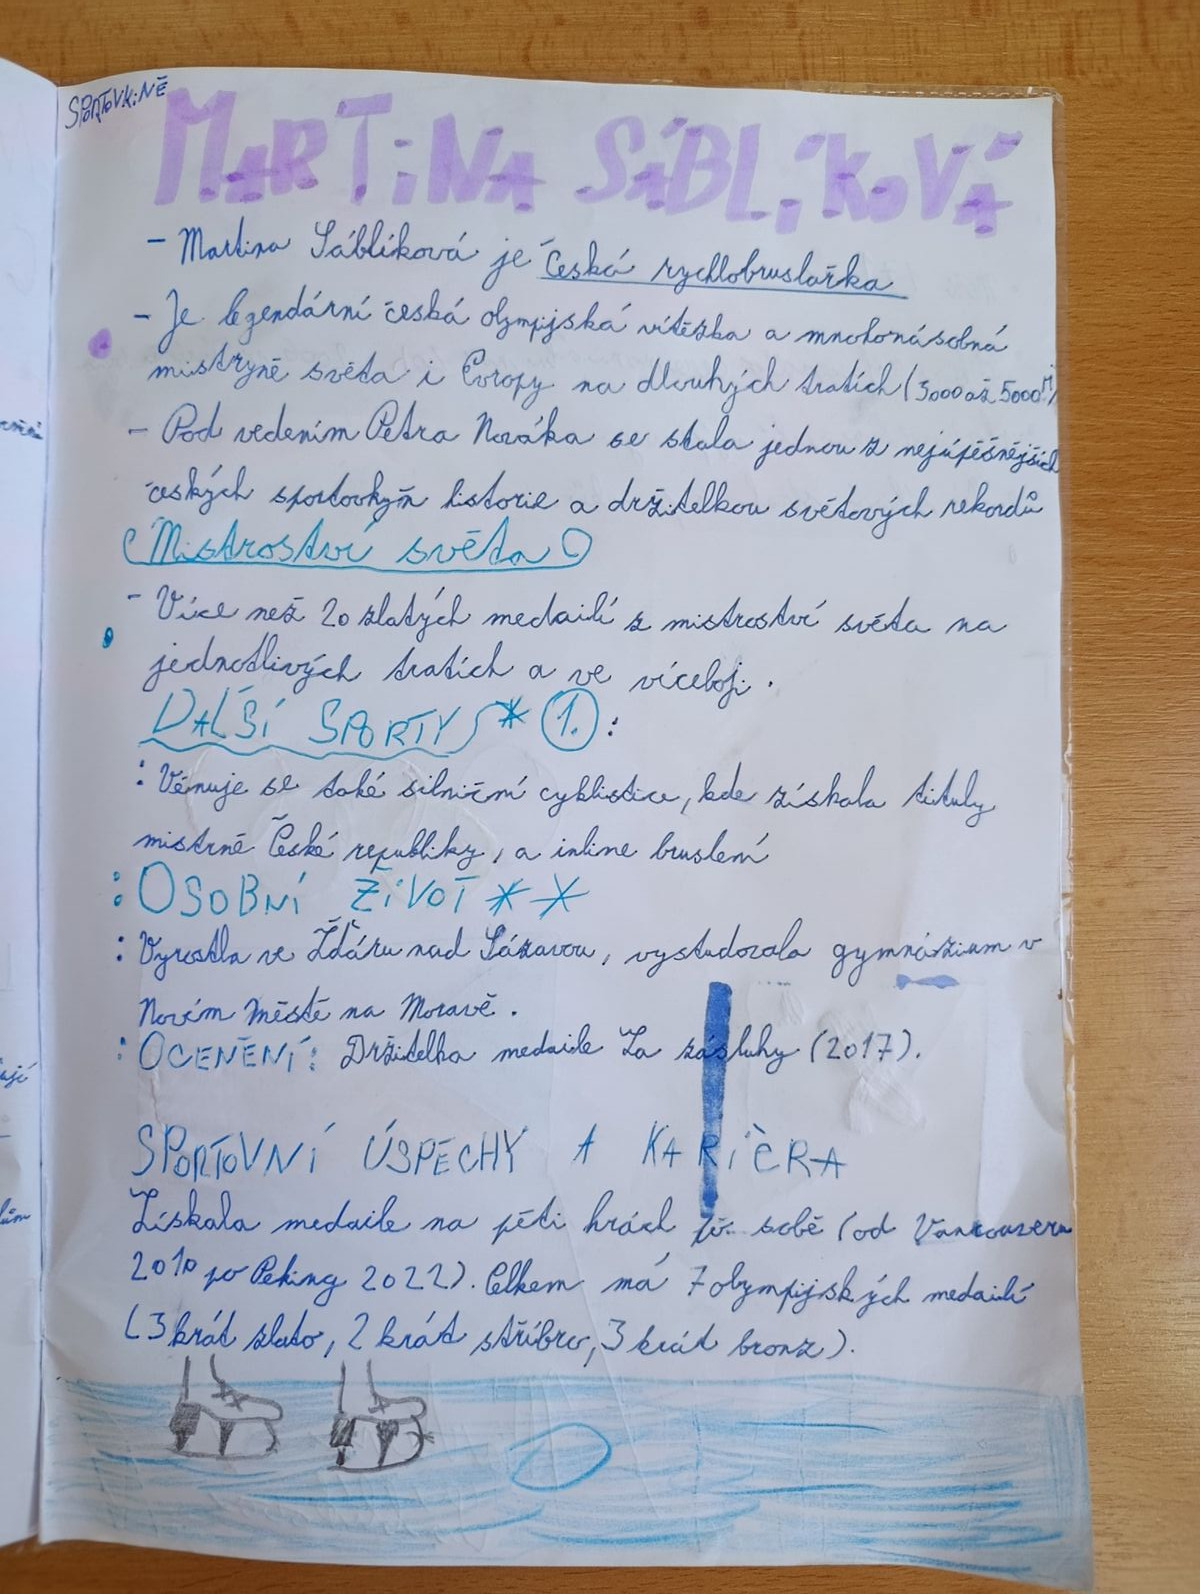 SPORTOVKiNĚ
MARTiNA SÁBLíKOVÁ
- Martina Sáblíková je česká rychlobruslařka
- Je legendární česká olympijská vítězka a mnohonásobná
mistryně světa i Evropy na dlouhých tratích (3000 až 5000M)
- Pod vedením Petra Nováka se stala jednou z nejúpěšnějších
českých sportovkyň historie a držitelkou světových rekordů
Mistroství světa
- Více než 20 zlatých medailí z mistroství světa na
jednotlivých tratích a ve víceboji.
DALŠÍ SPORTY * 1. :
: Věnuje se také silniční cyklistice, kde získala tituly
mistrně České republiky, a inline bruslení
: OSOBNÍ ŽiVOT * *
: Vyrostla ve Žďáru nad Sázavou, vystudovala gymnázium v
Novém městě na Moravě.
: OCENĚNÍ: Držitelka medaile Za zásluhy (2017).
SPORTOVNÍ ÚSPĚCHY A KARIÉRA
Získala medaile na pěti hrách po sobě (od Vancouveru
2010 po Peking 2022). Celkem má 7 olympijských medailí
(3 krát zlato, 2 krát stříbro, 3 krát bronz).